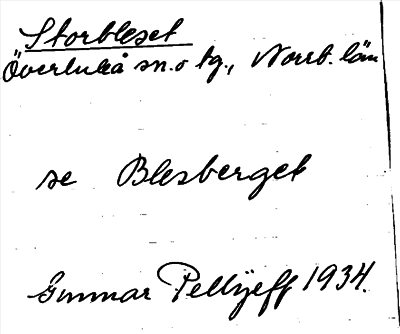 Storbleset
Överluleå sn. o tg., Norrb. län
se Blesberget
Gunnar Pellijeff 1934.